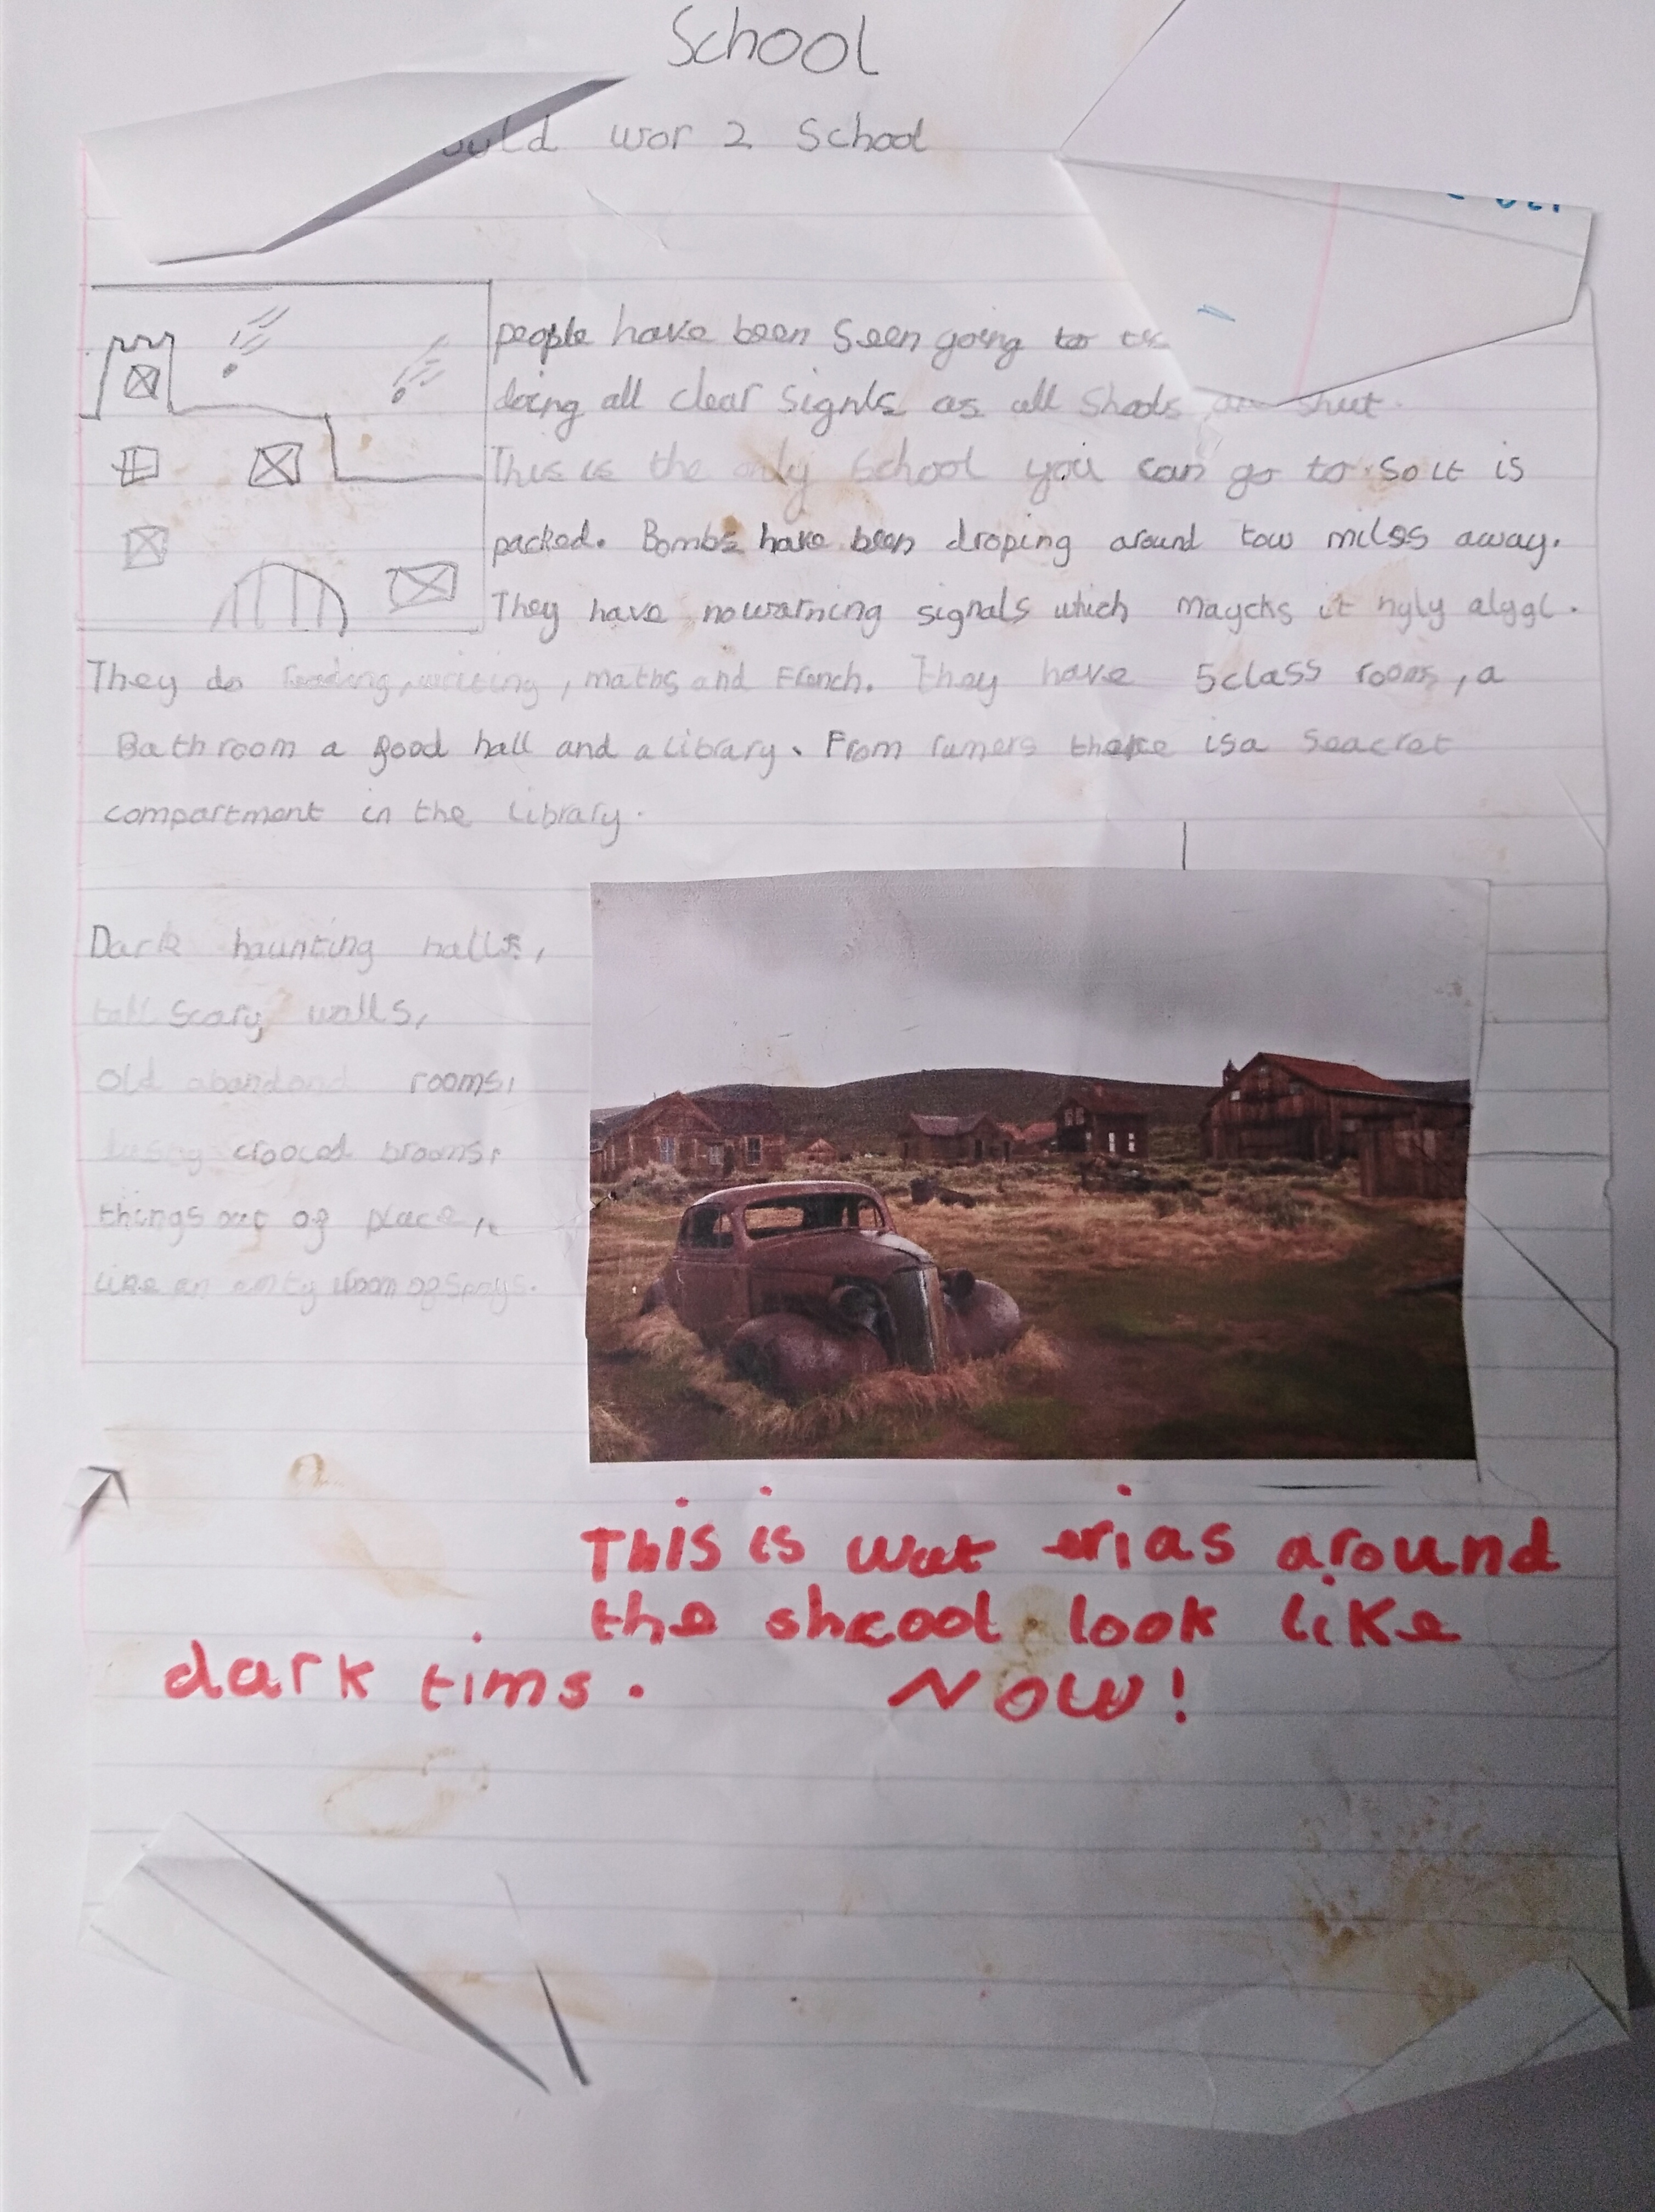 School
wor 2 School
people have been seen going to
doing all clear signls as all Shools are shut.
This is the only School you can go to so it is
packed. Bombs have been droping around tow miles away.
They have no warning signals which maycks it hyly alygl.
They do reading, writing, maths and French. They have 5 class rooms, a
Bathroom a good hall and a library. From rumers there is a seacret
compartment in the library.
Dark haunting halls,
tall scary walls,
Old abandond rooms,
crooced brooms,
things out of place,
like an emty room of
This is wat erias around
the shcool look like
dark tims. NOW!